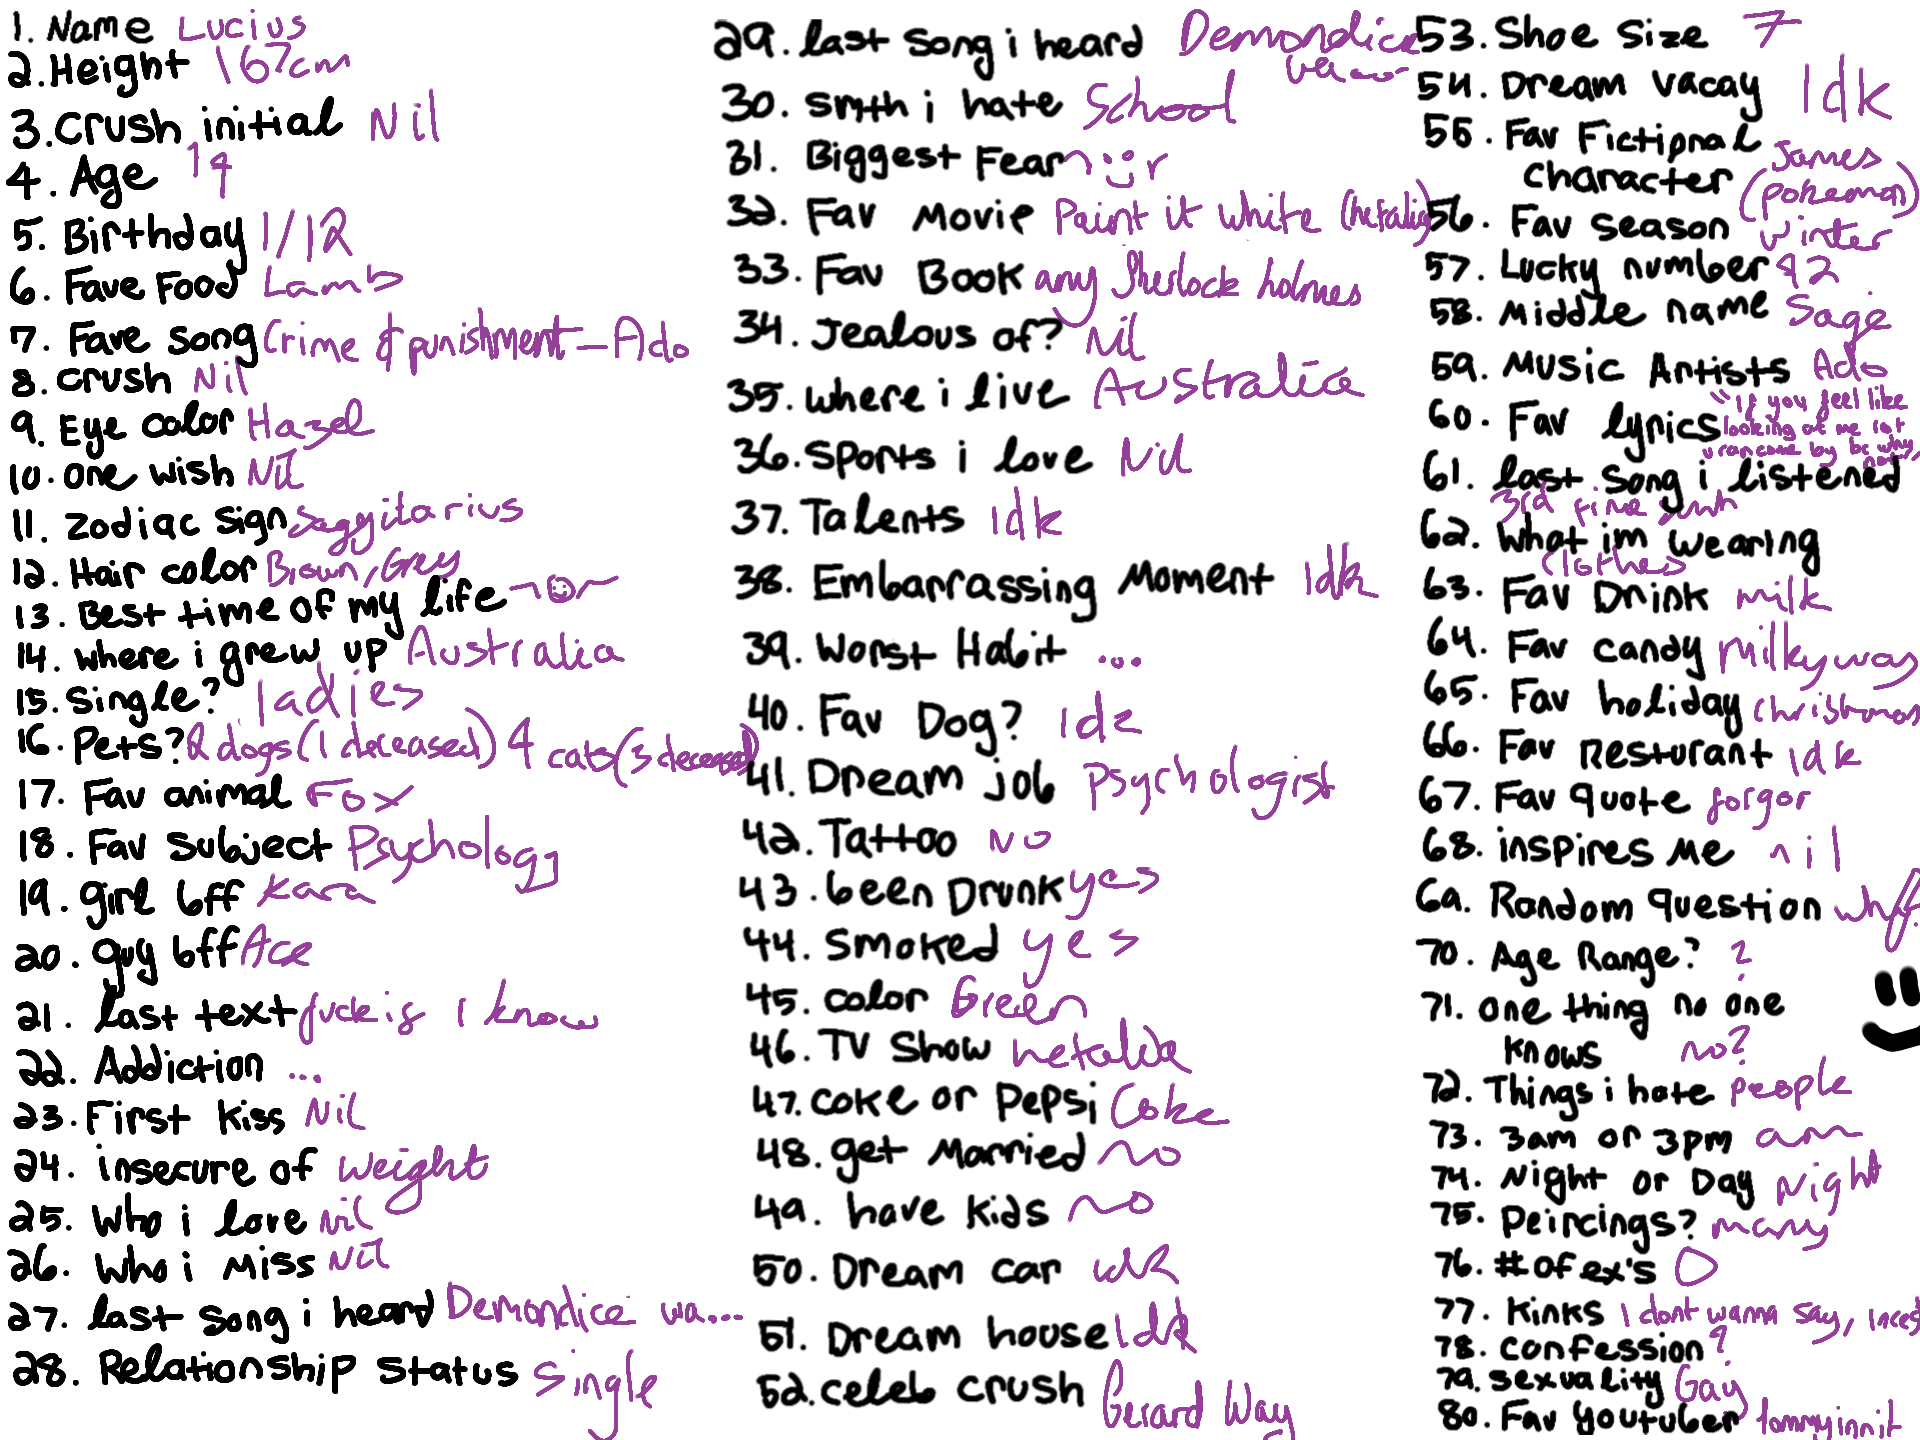 1. Name Lucius
2. Height 167cm
3. Crush initial Nil
4. Age 14
5. Birthday 1/12
6. Fave Food Lamb
7. Fave song Crime & punishment - Ado
8. Crush Nil
9. Eye color Hazel
10. One wish Nil
11. Zodiac sign Saggitarius
12. Hair color Brown, Grey
13. Best time of my life
14. where i grew up Australia
15. Single? ladies
16. Pets? 2 dogs (1 deceased) 4 cats (3 deceased)
17. Fav animal Fox
18. Fav Subject Psychology
19. girl bff Kara
20. guy bff Ace
21. last text fuck if I know
22. Addiction ...
23. First kiss Nil
24. insecure of Weight
25. Who i love nil
26. Who i Miss Nil
27. last song i heard Demondice wa....
28. Relationship Status Single
29. last song i heard Demondice
30. smth i hate School
31. Biggest Fear
32. Fav Movie Paint it white (hetalia)
33. Fav Book any Sherlock holmes
34. Jealous of? Nil
35. where i live Australia
36. Sports i love Nil
37. Talents Idk
38. Embarrassing Moment Idk
39. Worst Habit ...
40. Fav Dog? Idk
41. Dream job Psychologist
42. Tattoo No
43. been Drunk yes
44. Smoked yes
45. color Green
46. TV Show hetalia
47. coke or Pepsi Coke
48. get Married no
49. have kids no
50. Dream car idk
51. Dream house Idk
52. celeb crush Gerard Way
53. Shoe Size 7
54. Dream vacay Idk
55. Fav Fictional
Character James
(pokemon)
56. Fav season winter
57. Lucky number 42
58. Middle name Sage
59. Music Artists Ado
60. Fav lyrics "If you feel like
looking at me
61. last song i listened
3rd
62. What im wearing
Clothes
63. Fav Drink milk
64. Fav candy Milkyway
65. Fav holiday christmas
66. Fav Resturant Idk
67. Fav quote forgor
68. inspires Me nil
69. Random question why?
70. Age Range? ?
71. one thing no one
knows no?
72. Things i hate people
73. 3am or 3pm am
74. Night or Day Night
75. Peircings? many
76. # of ex's 0
78. confession ?
79. sexuality Gay
80. Fav youtuber tommyinnit